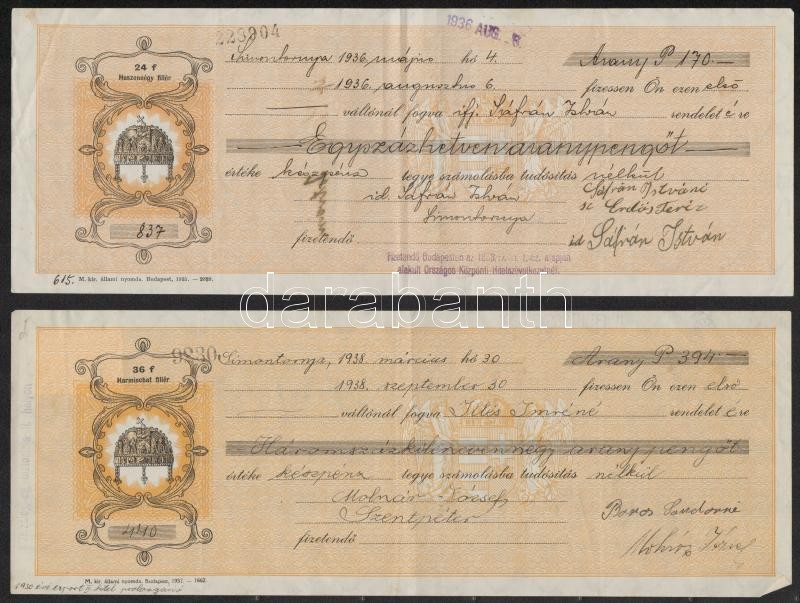 223904
1936 AUG.
24 f
Huszonnégy fillér
837
615.
M. kir. állami nyomda. Budapest, 1935. —
Simontornya 1936. május hó 4. Arany P 170.—
1936. augusztus 6. fizessen Ön ezen első
váltónál fogva ifj. Sáfrán István rendeletére
Egyszázhetven aranypengőt
értéke készpénz tegye számolásba tudósítás nélkül
id. Sáfrán István
Simontornya
fizetendő
Sáfrán Istváné
sz. Erdős Teréz
id Sáfrán István
Fizetendő Budapesten az
alakult Országos Központi Hitelszövetkezetnél.
darabanth
36 f
Harminchat fillér
440
M. kir. állami nyomda. Budapest, 1937. — 1662.
9830
Simontornya, 1938. március hó 30 Arany P 394.—
1938. szeptember 30 fizessen Ön ezen első
váltónál fogva Illés Imréné rendeletére
Háromszázkilencvennégy aranypengőt
értéke készpénz tegye számolásba tudósítás nélkül
Molnár József
Szentpéter
fizetendő
Boros Sándorné